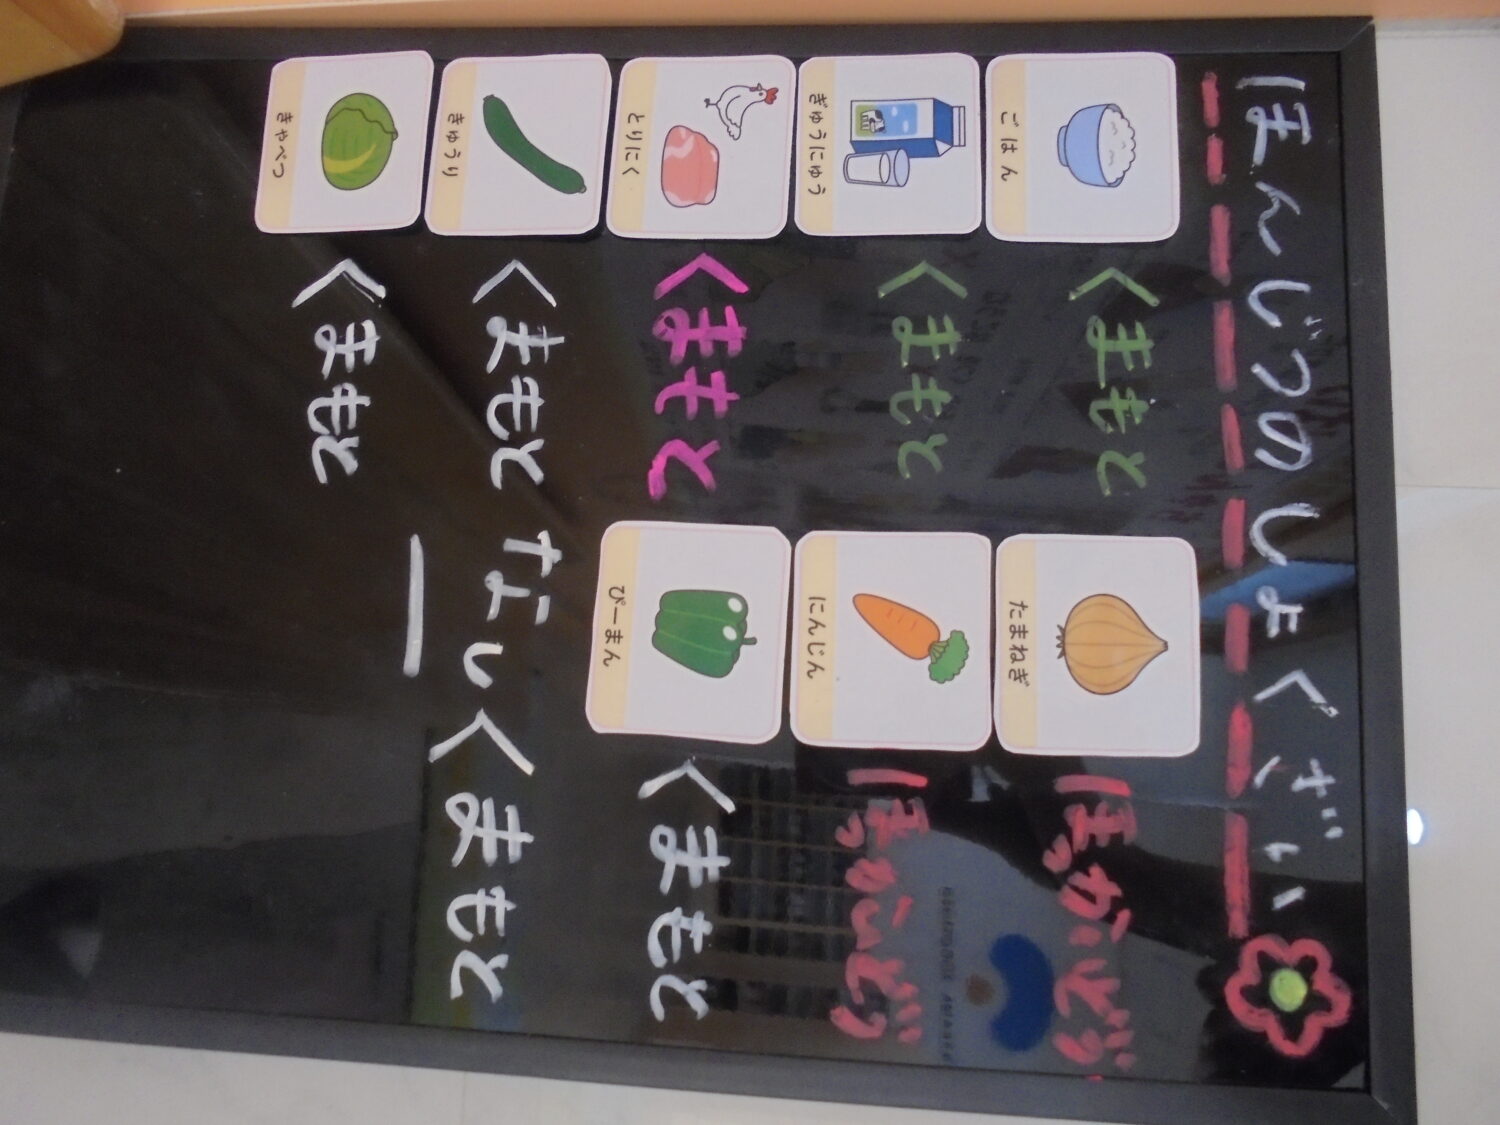 ほんじつのしょくざい
ごはん くまもと たまねぎ ほっかいどう
ぎゅうにゅう くまもと にんじん ほっかいどう
とりにく くまもと ぴーまん くまもと
きゅうり くまもと なし くまもと
きゃべつ くまもと